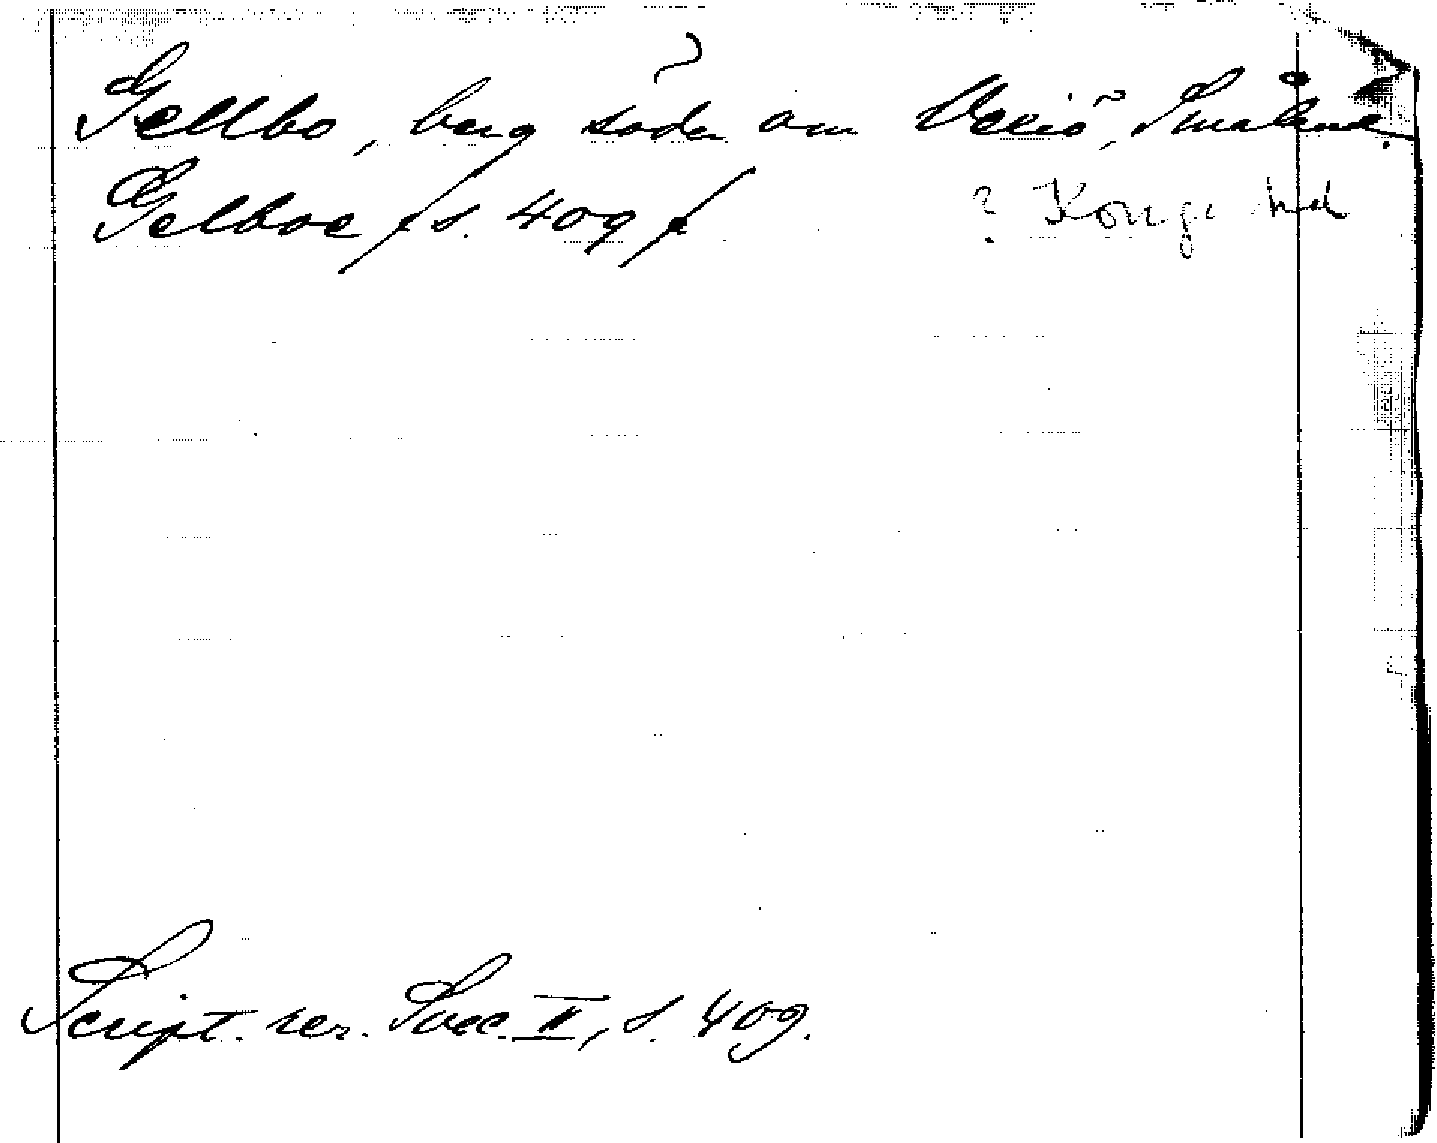 Gellbo, berg söder om Vexiö, Småland.
Gelboe /s. 409/ ? Konga hd
Script. rer. Svec. II, s. 409.